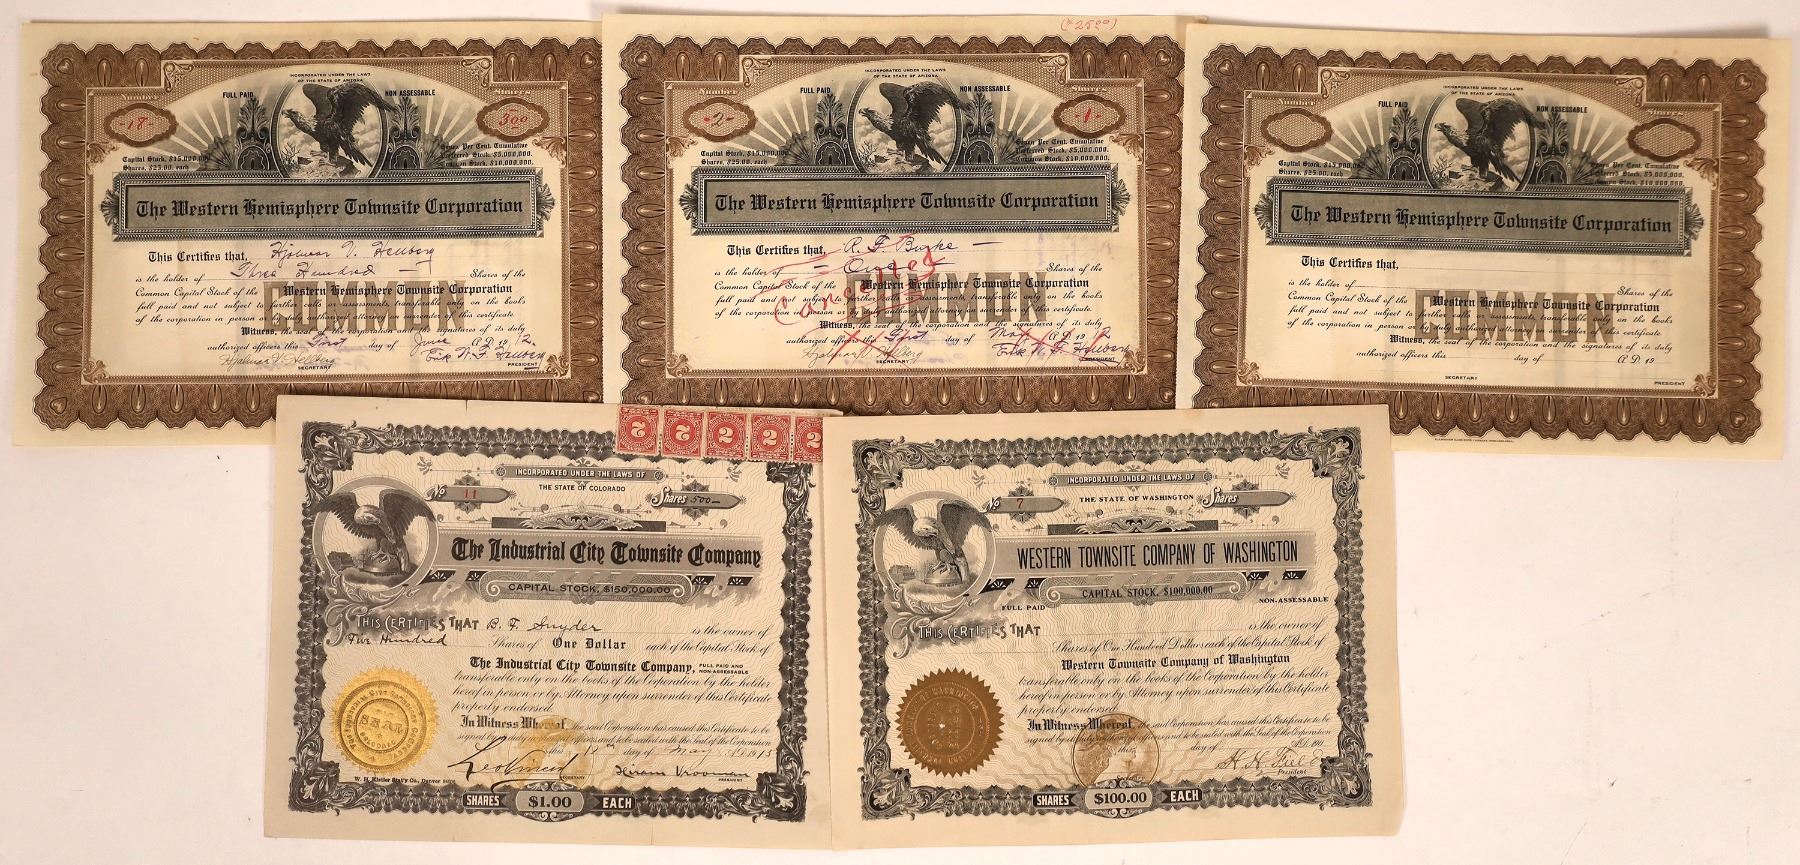 INCORPORATED UNDER THE LAWS
OF THE STATE OF ARIZONA
FULL PAID NON ASSESSABLE
Number Shares
-17- 300
Capital Stock, $15,000,000
Shares, $25.00, each
Seven Per Cent. Cumulative
Preferred Stock, $5,000,000.
Common Stock, $10,000,000.
The Western Hemisphere Townsite Corporation
This Certifies that, Hjalmar V. Hellberg
is the holder of Three Hundred Shares of the
Common Capital Stock of the Western Hemisphere Townsite Corporation
COMMON
full paid and not subject to further calls or assessments, transferable only on the books
of the corporation in person or by duly authorized attorney on surrender of this certificate.
Witness, the seal of the corporation and the signatures of its duly
authorized officers this First day of June A.D. 1912.
Hjalmar V. Hellberg
SECRETARY PRESIDENT
($25.00)
INCORPORATED UNDER THE LAWS
OF THE STATE OF ARIZONA
FULL PAID NON ASSESSABLE
Number Shares
-2- -1-
Capital Stock, $15,000,000
Shares, $25.00, each
Seven Per Cent. Cumulative
Preferred Stock, $5,000,000.
Common Stock, $10,000,000.
The Western Hemisphere Townsite Corporation
This Certifies that, A. F. Burke
is the holder of One Shares of the
Common Capital Stock of the Western Hemisphere Townsite Corporation
COMMON
full paid and not subject to further calls or assessments, transferable only on the books
of the corporation in person or by duly authorized attorney on surrender of this certificate.
Witness, the seal of the corporation and the signatures of its duly
authorized officers this First day of May A.D. 1912
Hjalmar V. Hellberg
SECRETARY PRESIDENT
INCORPORATED UNDER THE LAWS
OF THE STATE OF ARIZONA
FULL PAID NON ASSESSABLE
Number Shares
Capital Stock, $15,000,000
Shares, $25.00, each
Seven Per Cent. Cumulative
Preferred Stock, $5,000,000.
Common Stock, $10,000,000.
The Western Hemisphere Townsite Corporation
This Certifies that,
is the holder of Shares of the
Common Capital Stock of the Western Hemisphere Townsite Corporation
COMMON
full paid and not subject to further calls or assessments, transferable only on the books
of the corporation in person or by duly authorized attorney on surrender of this certificate.
Witness, the seal of the corporation and the signatures of its duly
authorized officers this day of A.D. 19
SECRETARY PRESIDENT
2 2 2 2 2
INCORPORATED UNDER THE LAWS OF
THE STATE OF COLORADO
No 11 Shares 500
The Industrial City Townsite Company
CAPITAL STOCK, $150,000.00
THIS CERTIFIES THAT B. F. Snyder is the owner of
Five Hundred Shares of One Dollar each of the Capital Stock of
The Industrial City Townsite Company, FULL PAID AND NON-ASSESSABLE
transferable only on the books of the Corporation by the holder
hereof in person or by Attorney upon surrender of this Certificate
properly endorsed.
In Witness Whereof, the said Corporation has caused this Certificate to be
signed by its duly authorized officers and to be sealed with the Seal of the Corporation
this day of May A.D. 1915
SEAL
COLORADO
W. H. Kistler Stat'y Co., Denver
Hiram Vrooman
PRESIDENT
SHARES $1.00 EACH
INCORPORATED UNDER THE LAWS OF
THE STATE OF WASHINGTON
No 7 Shares
WESTERN TOWNSITE COMPANY OF WASHINGTON
CAPITAL STOCK, $100,000.00
FULL PAID NON-ASSESSABLE
THIS CERTIFIES THAT is the owner of
Shares of One Hundred Dollars each of the Capital Stock of
Western Townsite Company of Washington
transferable only on the books of the Corporation by the holder
hereof in person or by Attorney upon surrender of this Certificate
properly endorsed.
In Witness Whereof, the said Corporation has caused this Certificate to be
signed by its duly authorized officers and to be sealed with the Seal of the Corporation
this day of A.D. 190
H. H. Field
President
SHARES $100.00 EACH